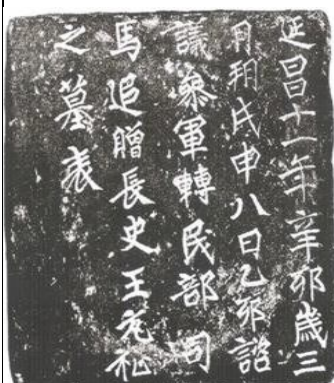 延昌十一年辛卯歲三
月朔戊申八日乙卯諮
議參軍轉民部司
馬追贈長史王元祉
之墓表